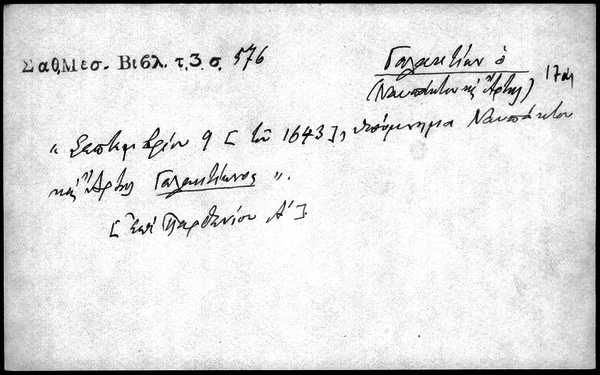 Σαθ. Μεσ. Βιβλ. τ. 3 σ. 576
Γαλακτίων ὁ
(Ναυπάκτου κ Ἄρτης) 17 αἰ
"Σεπτεμβρίου 9 [τοῦ 1643], ὑπόμνημα Ναυπάκτου
καὶ Ἄρτης Γαλακτίωνος".
[Ἐπὶ Παρθενίου Α']